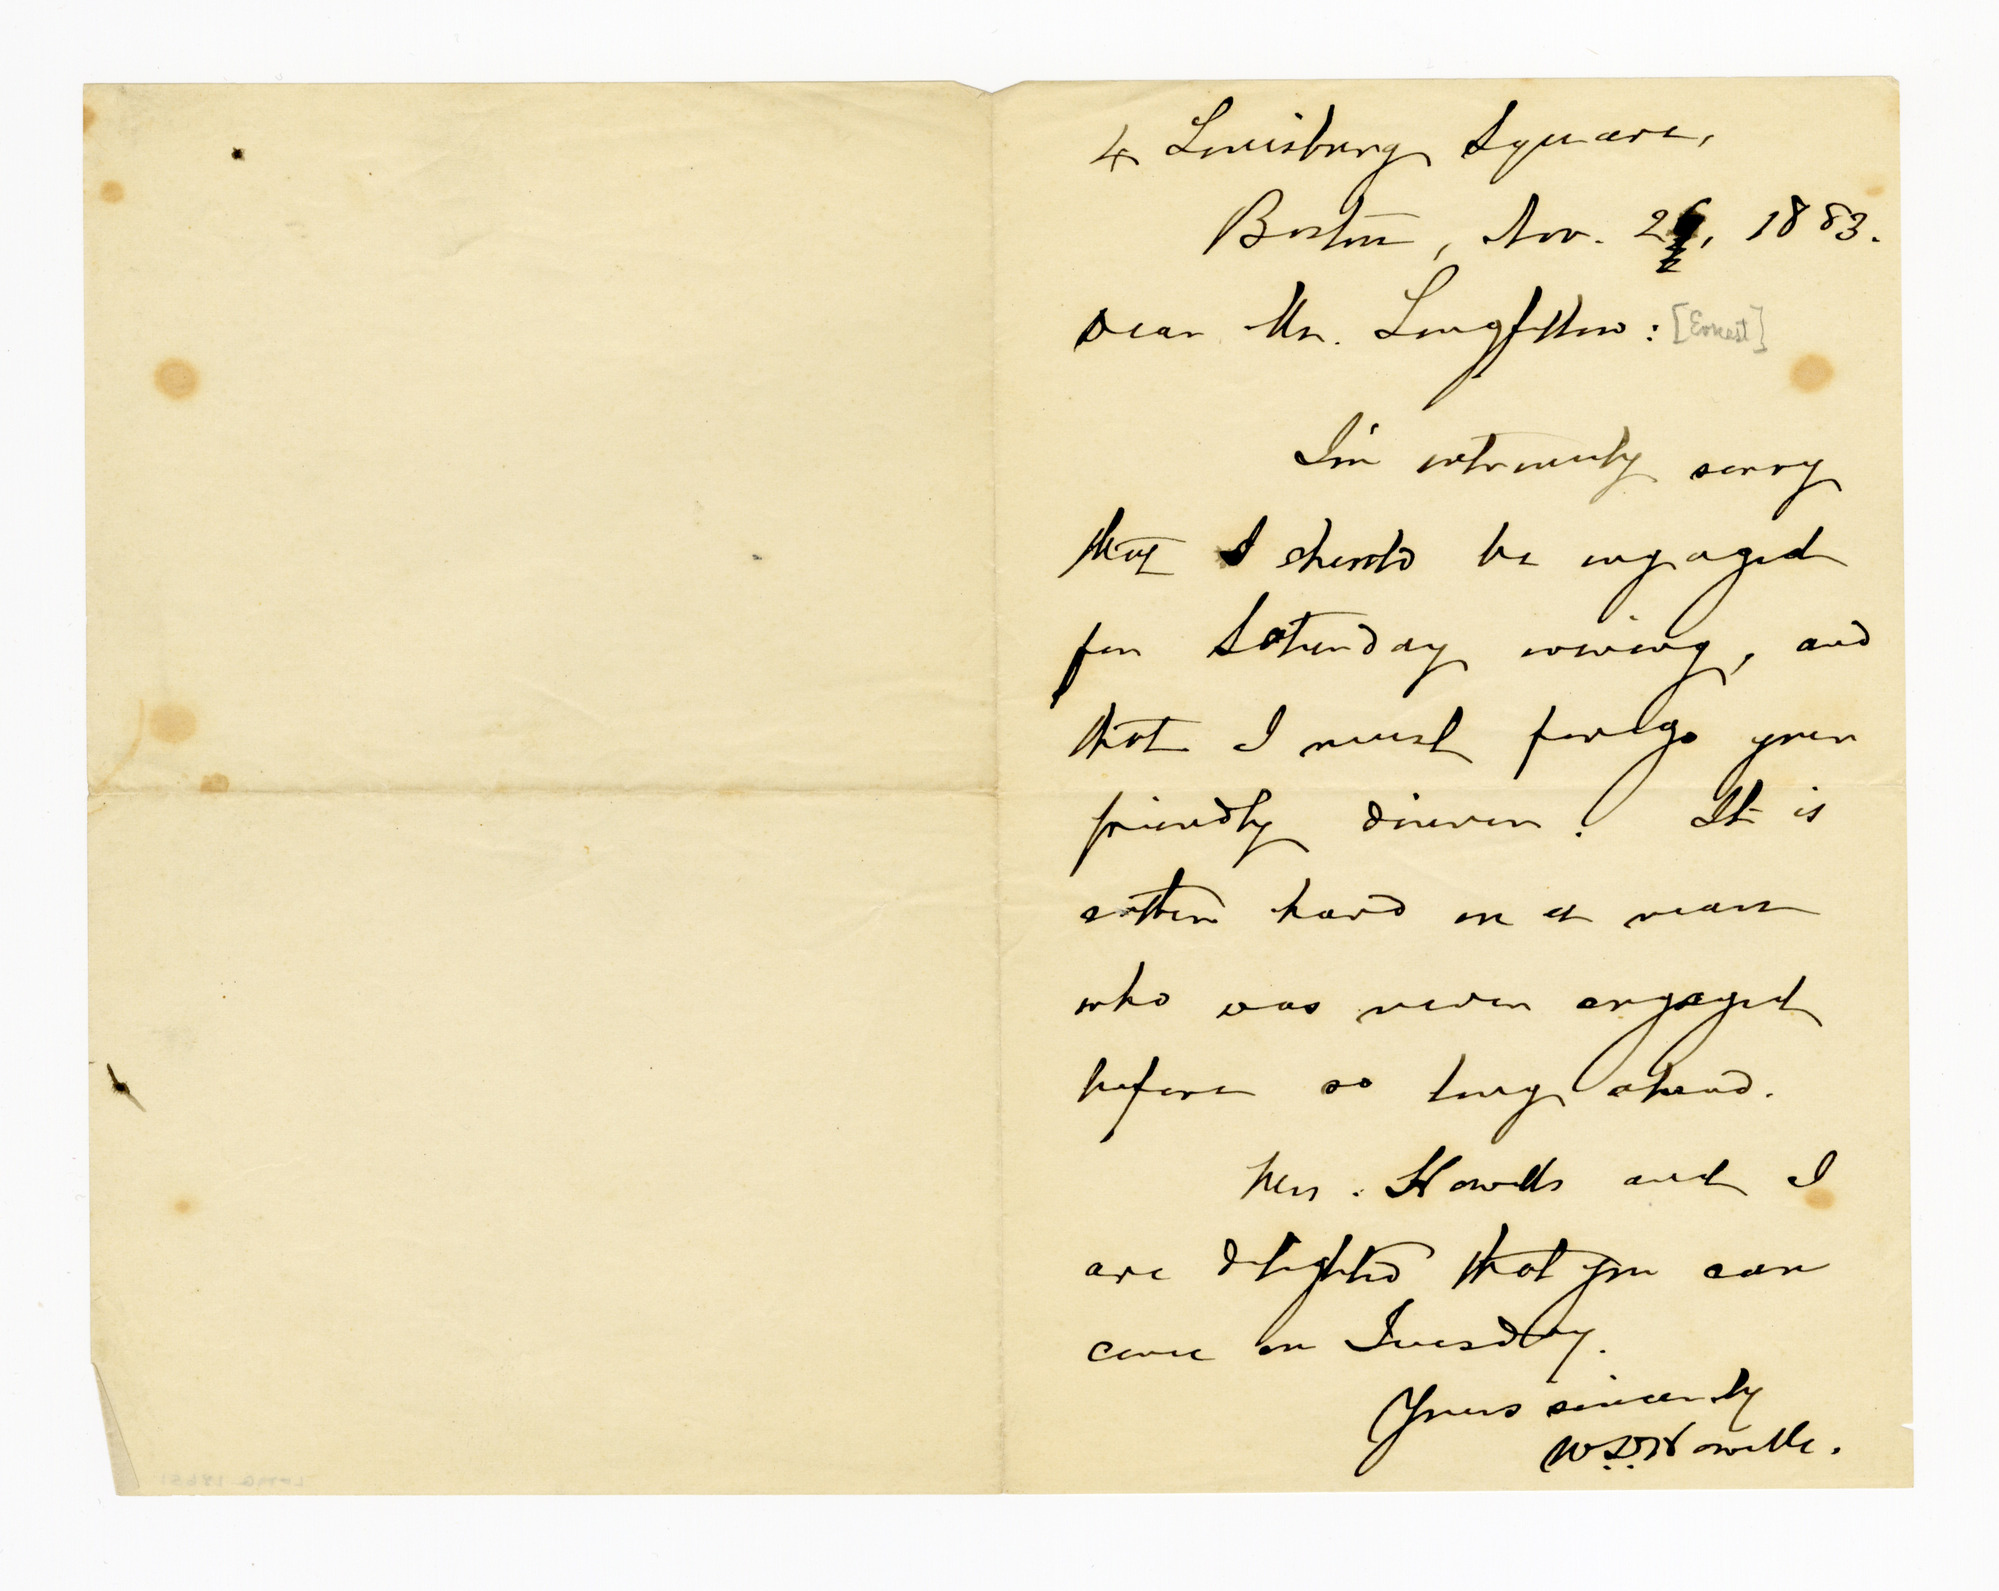 4 Louisburg Square,
Boston, Nov. 2 , 1883.
Dear Mr. Longfellow: [Ernest]
I'm extremely sorry
that I should be engaged
for Saturday evening, and
that I must forego your
friendly dinner. It is
rather hard on a man
who was never engaged
before so long ahead.
Mrs. Howells and I
are delighted that you can
come on Tuesday.
Yours sincerely
W.D. Howells.